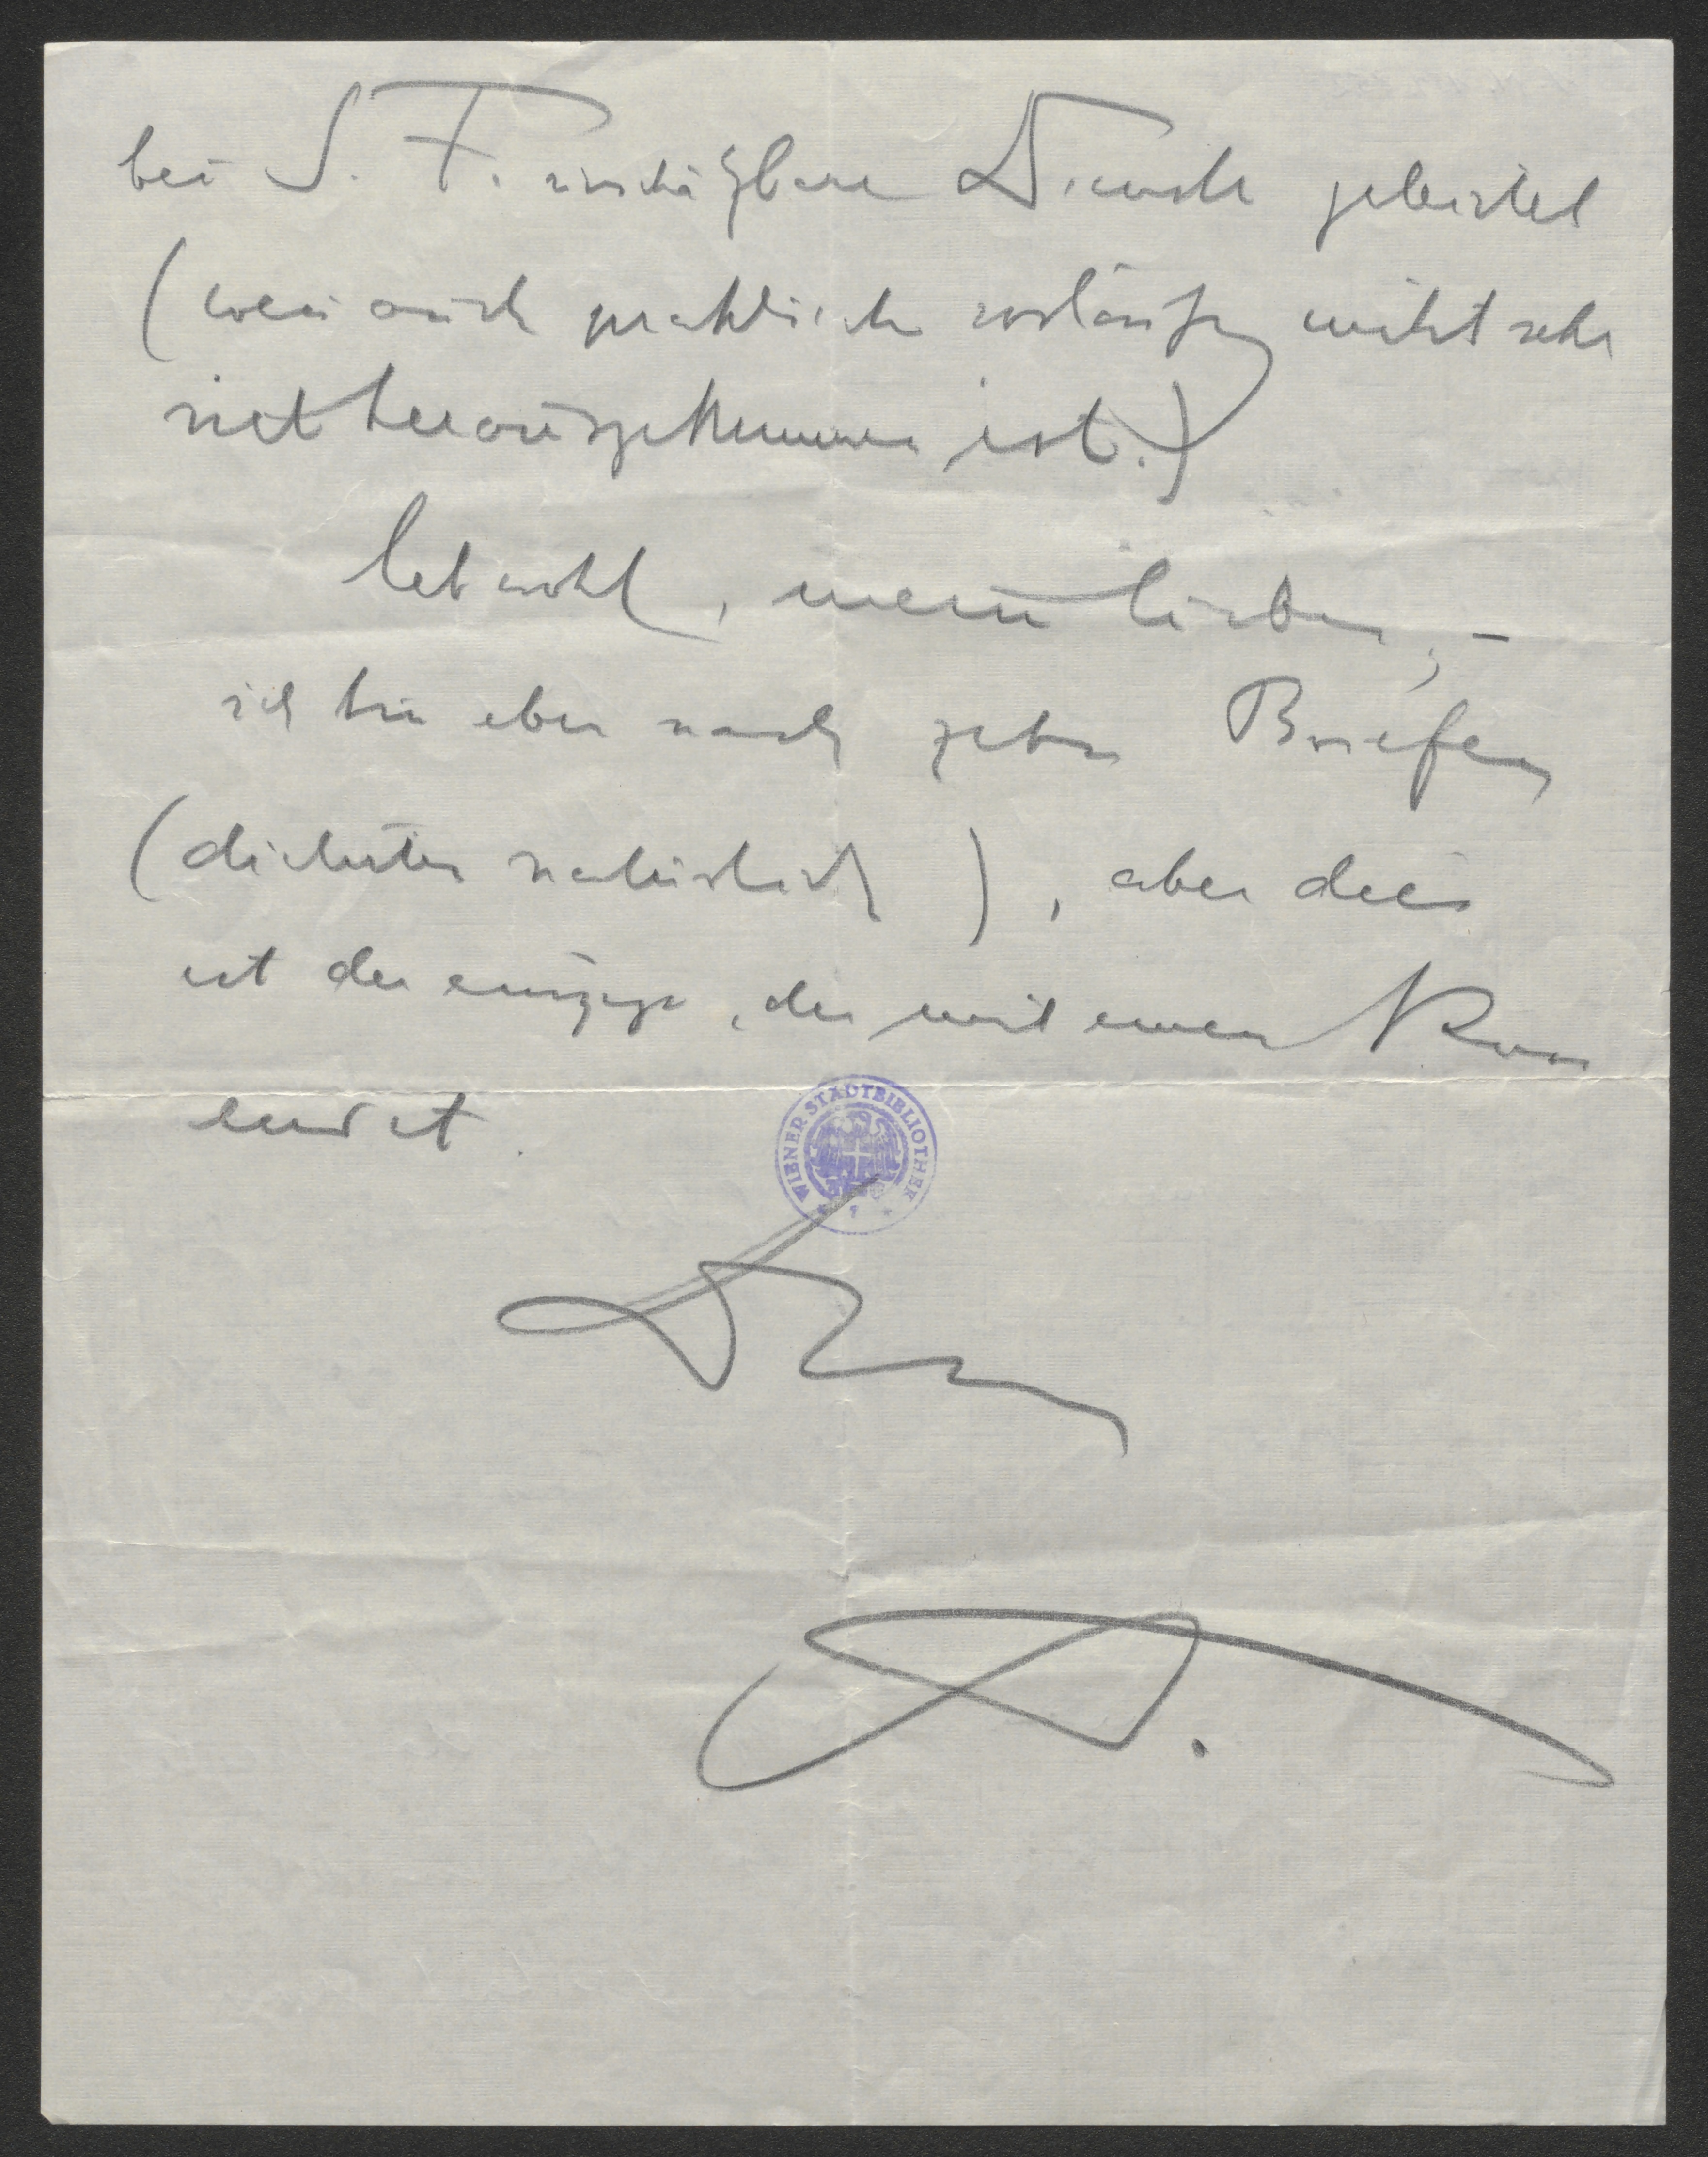 bei S. F. unschätzbare Dienste geleistet
(wenn auch praktisch vorläufig nicht sehr
viel herausgekommen ist.)
Leb wohl, mein Lieber, –
ich bin eben nach zehn Briefen
(diktierten natürlich), aber dies
ist der einzige, der mit einem Kuss
endet.
WIENER STADTBIBLIOTHEK
Dein